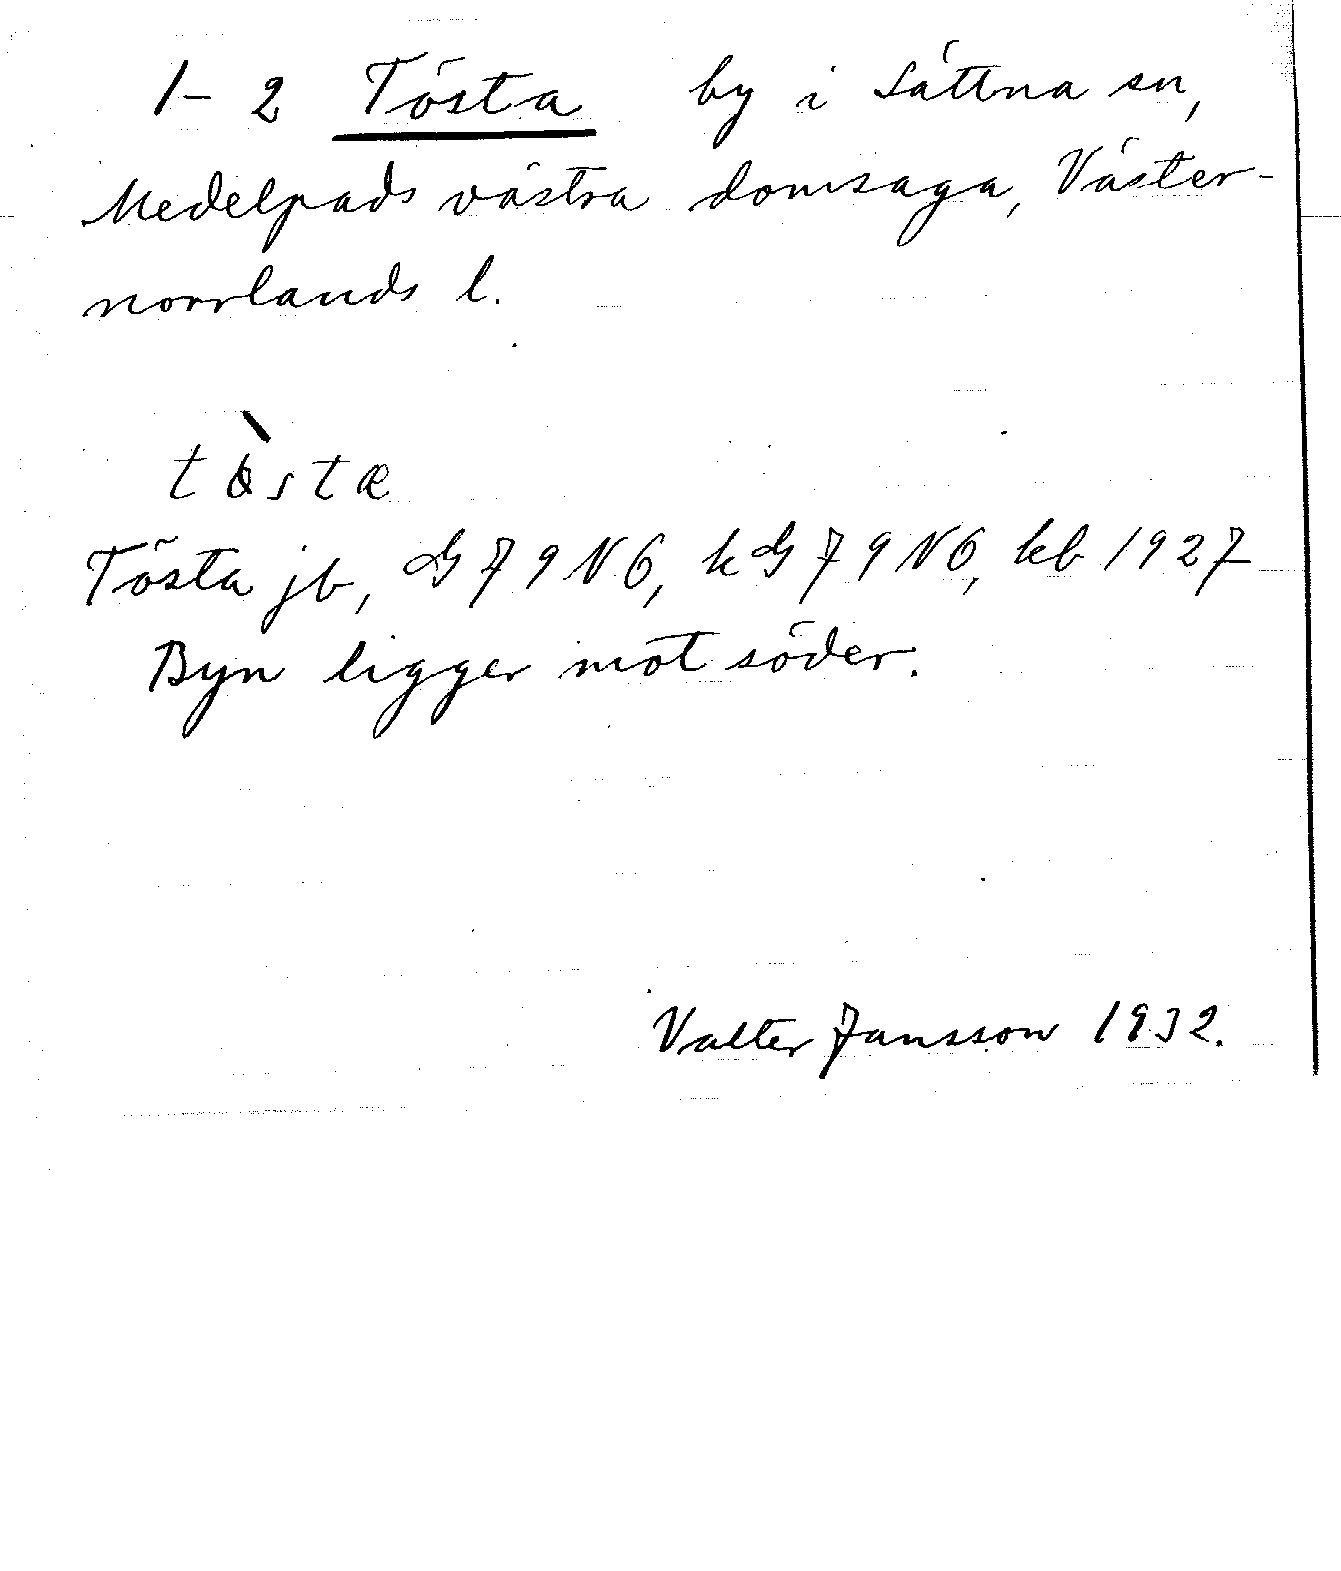 1-2 Tösta by i Sättna sn,
Medelpads västra domsaga, Väster-
norrlands l.
tö̀stæ
Tösta jb, G 79 N 6, kG 79 N 6, kb 1927
Byn ligger mot söder.
Valter Jansson 1932.